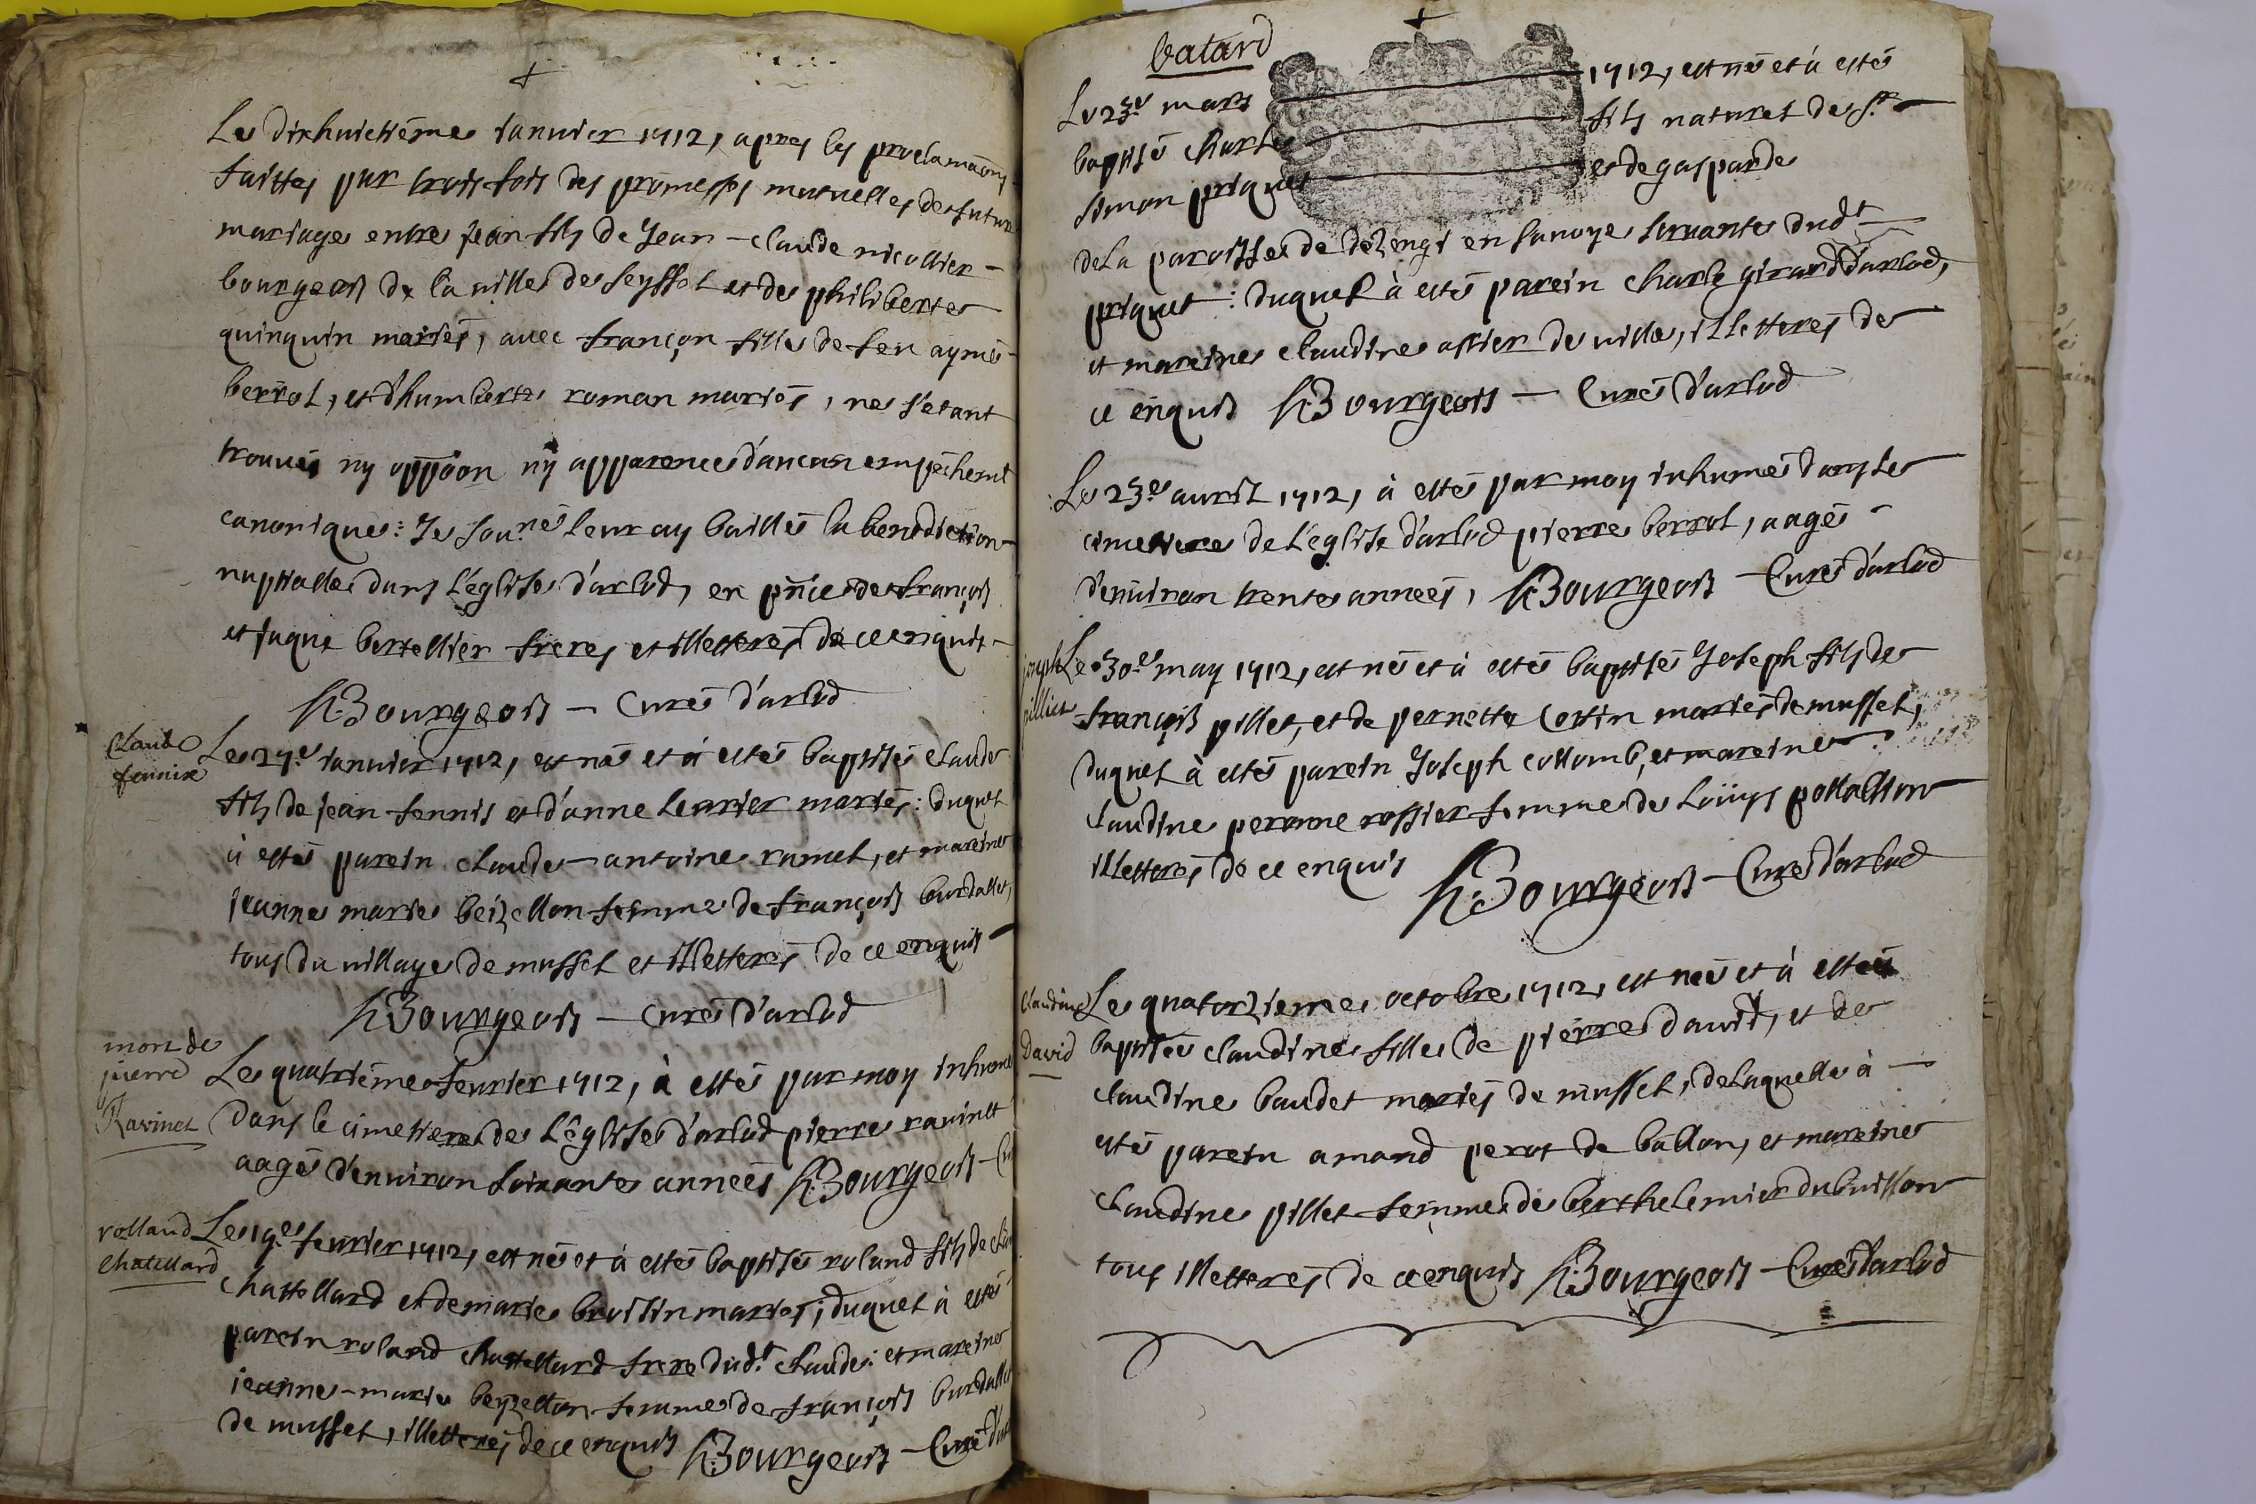 Le dixhuictiéme ianuier 1712, apres les proclamaõns
faittes par trois fois des promesses mutuelles de futur
mariage entre jean fils de Jean-claude nicollier
bourgeois de la ville de seyssel et de philiberte
quinquin mariés, auec françon fille de feu aymé
berrot, et d'humberte roman mariés, ne s'etant
trouués ny oppõon ny apparence d'aucun empéchemt
canonique: Je sou.né leur ay baillés la benediction
nuptialle dans l'églises d'arlod, en pñce de françois
et jaque bertellier freres et illetterés de ce enquis
h: Bourgeois - curés d'arlod
Claude
fennix
Le 27.e ianuier 1712, est nés et à estés baptisés claude
fils de jean fennis et d'anne leurier mariés: duquel
à estés parein claude-antoine ramel, et mareine
jeanne marie beizellon femme de françois burdallet,
tous du village de mussel et illetterés de ce enquis
h: Bourgeois - curés d'arlod
mort de
pierre
Ravinet
Le quatriéme feurier 1712, à estés par moy inhumé
dans le cimetiere de l'églises d'arlod pierre rauinet
aagés d'enuiron soixante années h: Bourgeois - Cu
rolland
Chatillard
Le 19.e feurier 1712, est nés et à estés baptisés roland fils de
chastellard et de marie brossin mariés; duquel à estés
parein roland chastellard frere dud.t claude: et mareine
jeanne-marie beyzellon femme de françois burdallet
de mussel, illetterés de ce enquis h: Bourgeois - Curé d'arl
batard
Le 23.e mars 1712, est nés et à estés
baptisé charle fils naturel de s.r
simon priquet et de gasparde
de la paroisse de dezengi en sauoye seruante dud.t
priquet: duquel à estés parein charle girard d'arlod,
et mareine claudine assier de ville, illetterés de
ce enquis h: Bourgeois - Curés d'arlod
Le 23.e auril 1712, à estés par moy inhumés dans le
cimetiere de l'églíse d'arlod pierre berrot, aagés
d'enuiron trente années, h: Bourgeois - Curés d'arlod
joseph
pilliet
Le 30.e may 1712, est né et à estés baptisés Joseph fils de
françois pillet, et de pernette cottin mariés de mussel,
duquel à estés parein Joseph collomb, et mareine
claudine peronne rossier femme de loüys pollallion
illetterés de ce enquis h: Bourgeois - Curés d'arlod
Claudine
David
Le quatorzieme octobre 1712, est neé et à estée
baptisée claudine fille de pierre dauid, et de
claudine baudet mariés de mussel, de laquelle à
estés parein amand perot de ballon, et mareine
claudine pillet femme de berthelemier dubuisson
tous illetterés de ce enquis h: Bourgeois - Curés d'arlod